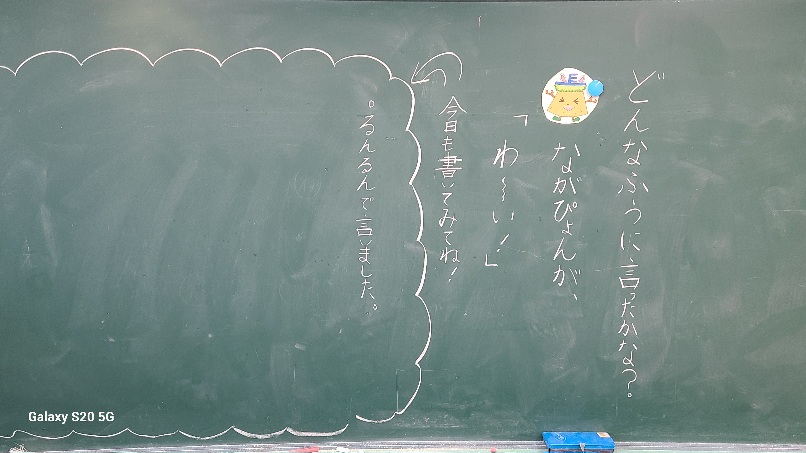 どんなふうに言ったかな？
E
ながぴょんが、
「わ〜い！」
今日も書いてみてね！
。るんるんで言いました。
Galaxy S20 5G